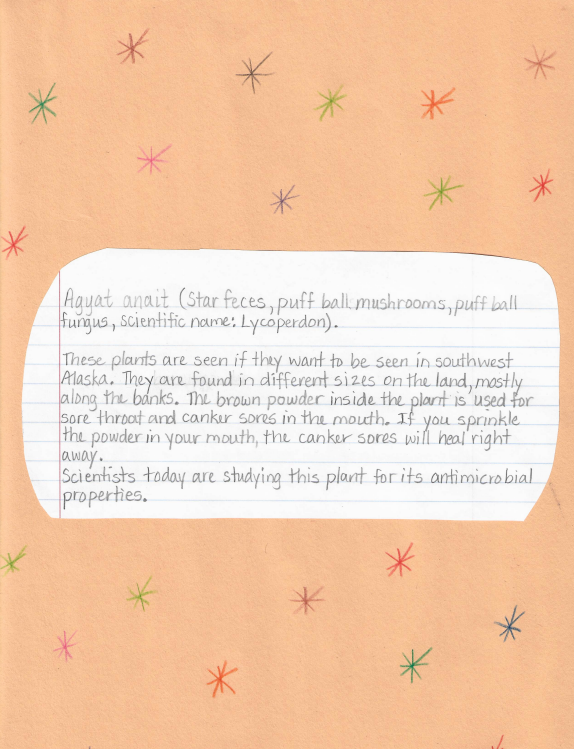 Agyat anait (Star feces, puff ball mushrooms, puff ball
fungus, Scientific name: Lycoperdon).
These plants are seen if they want to be seen in southwest
Alaska. They are found in different sizes on the land, mostly
along the banks. The brown powder inside the plant is used for
sore throat and canker sores in the mouth. If you sprinkle
the powder in your mouth, the canker sores will heal right
away.
Scientists today are studying this plant for its antimicrobial
properties.